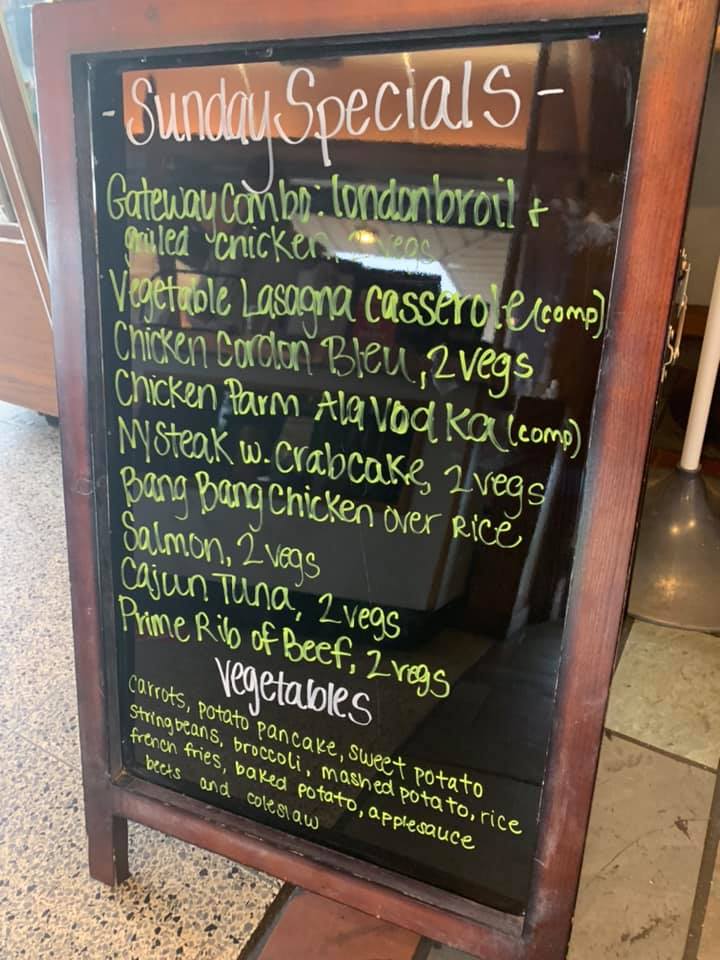 - Sunday Specials -
Gateway Combo: londonbroil +
grilled chicken, 2 vegs
Vegetable Lasagna casserole (comp)
Chicken Cordon Bleu, 2 vegs
Chicken Parm Ala Vodka (comp)
NY Steak w. Crabcake, 2 vegs
Bang Bang Chicken over Rice
Salmon, 2 vegs
Cajun Tuna, 2 vegs
Prime Rib of Beef, 2 vegs
Vegetables
carrots, potato pancake, sweet potato
stringbeans, broccoli, mashed potato, rice
french fries, baked potato, applesauce
beets and coleslaw